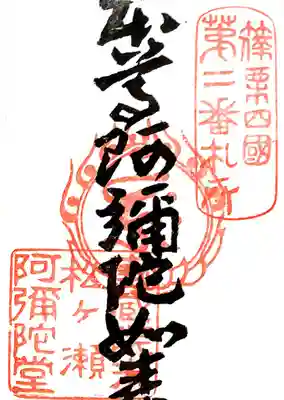 篠栗四國
第二番札所
本尊阿彌陀如来
松ヶ瀬
阿彌陀堂